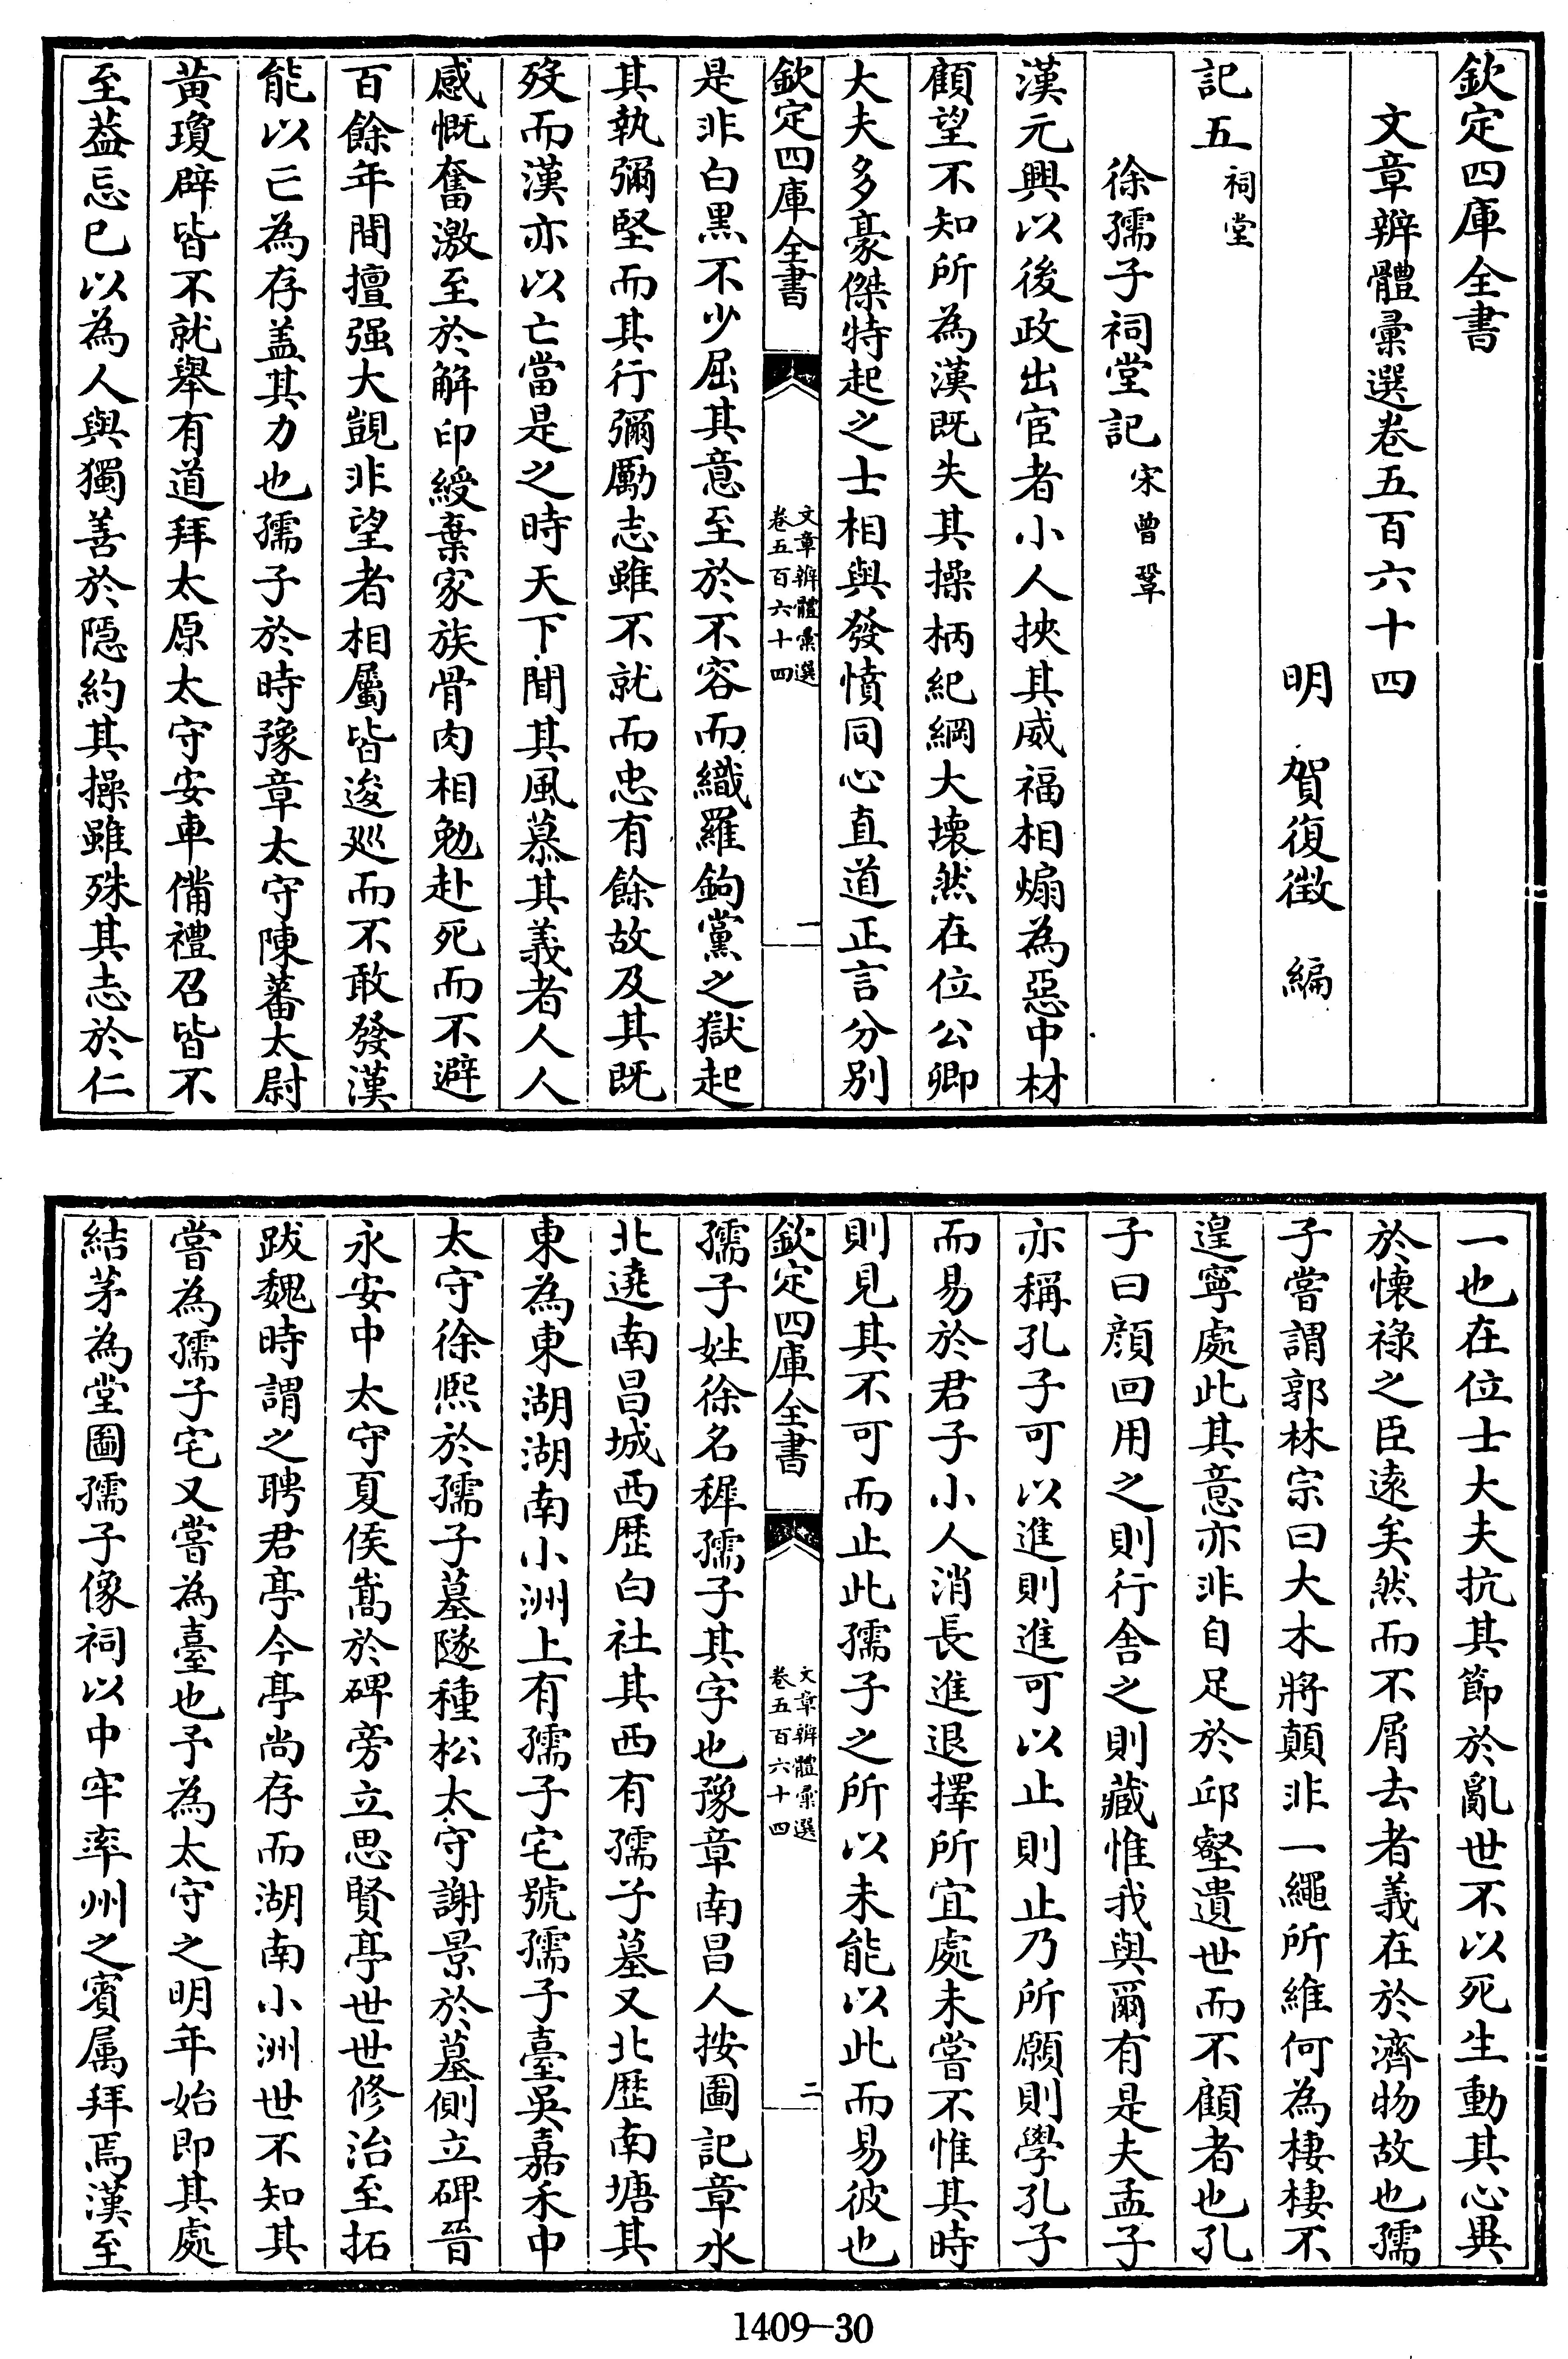 欽定四庫全書
文章辨體彙選卷五百六十四
明 賀復徵 編
記五 祠堂
徐孺子祠堂記 宋曾鞏
漢元興以後政出宦者小人挾其威福相煽為惡中材
顧望不知所為漢既失其操柄紀綱大壞然在位公卿
大夫多豪傑特起之士相與發憤同心直道正言分別
欽定四庫全書
文章辨體彙選
卷五百六十四
一
是非白黑不少屈其意至於不容而織羅鉤黨之獄起
其執彌堅而其行彌勵志雖不就而忠有餘故及其既
歿而漢亦以亡當是之時天下聞其風慕其義者人人
感慨奮激至於解印綬棄家族骨肉相勉赴死而不避
百餘年間擅强大覬非望者相屬皆逡巡而不敢發漢
能以亡為存盖其力也孺子於時豫章太守陳蕃太尉
黃瓊辟皆不就舉有道拜太原太守安車備禮召皆不
至葢忘已以為人與獨善於隠約其操雖殊其志於仁
一也在位士大夫抗其節於亂世不以死生動其心異
於懷祿之臣遠矣然而不屑去者義在於濟物故也孺
子嘗謂郭林宗曰大木將顛非一繩所維何為棲棲不
遑寧處此其意亦非自足於邱壑遺世而不顧者也孔
子曰顔回用之則行舍之則藏惟我與爾有是夫孟子
亦稱孔子可以進則進可以止則止乃所願則學孔子
而易於君子小人消長進退擇所宜處未嘗不惟其時
則見其不可而止此孺子之所以未能以此而易彼也
欽定四庫全書
文章辨體彙選
卷五百六十四
二
孺子姓徐名稺孺子其字也豫章南昌人按圖記章水
北遶南昌城西歷白社其西有孺子墓又北歷南塘其
東為東湖湖南小洲上有孺子宅號孺子臺吳嘉禾中
太守徐熙於孺子墓隧種松太守謝景於墓側立碑晉
永安中太守夏侯嵩於碑旁立思賢亭世世修治至拓
跋魏時謂之聘君亭今亭尚存而湖南小洲世不知其
嘗為孺子宅又嘗為臺也予為太守之明年始即其處
結茅為堂圖孺子像祠以中牢率州之賓属拜焉漢至
1409-30